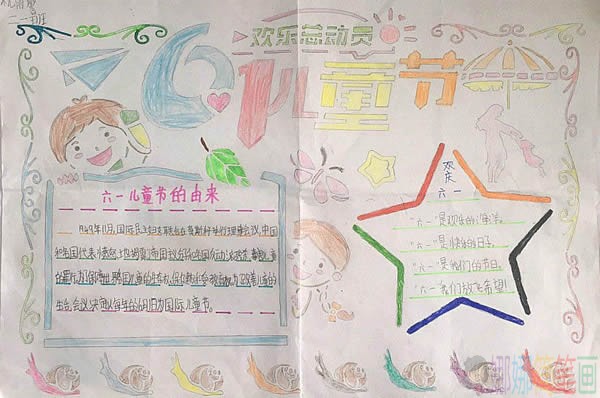 二一班
欢乐总动员
61儿童节
六一儿童节的由来
1949年11月,国际民主妇女联合会在莫斯科举行理事会议,中国
和各国代表愤怒地揭露了帝国主义
儿童的
生
会议决定以每年的6月1日为国际儿童节。
欢庆
六一
"六一"是欢乐的海洋,
"六一"是快乐的日子,
"六一"是我们的节日,
"六一"我们放飞希望!
娜娜简笔画